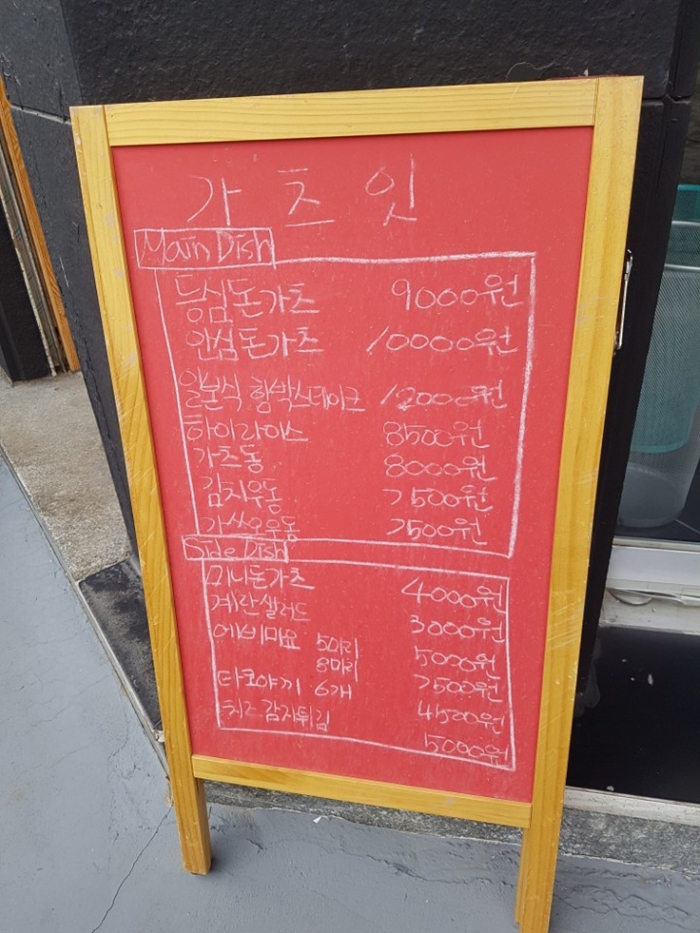 가츠잇
Main Dish
등심돈가츠 9000원
안심돈가츠 10000원
일본식 함박스테이크 12000원
하이라이스 8500원
가츠동 8000원
김치우동 7500원
가쓰오우동 7500원
Side Dish
미니돈가츠 4000원
계란샐러드 3000원
에비마요 5마리 5000원
8마리 7500원
타코야끼 6개 4500원
치즈감자튀김 5000원